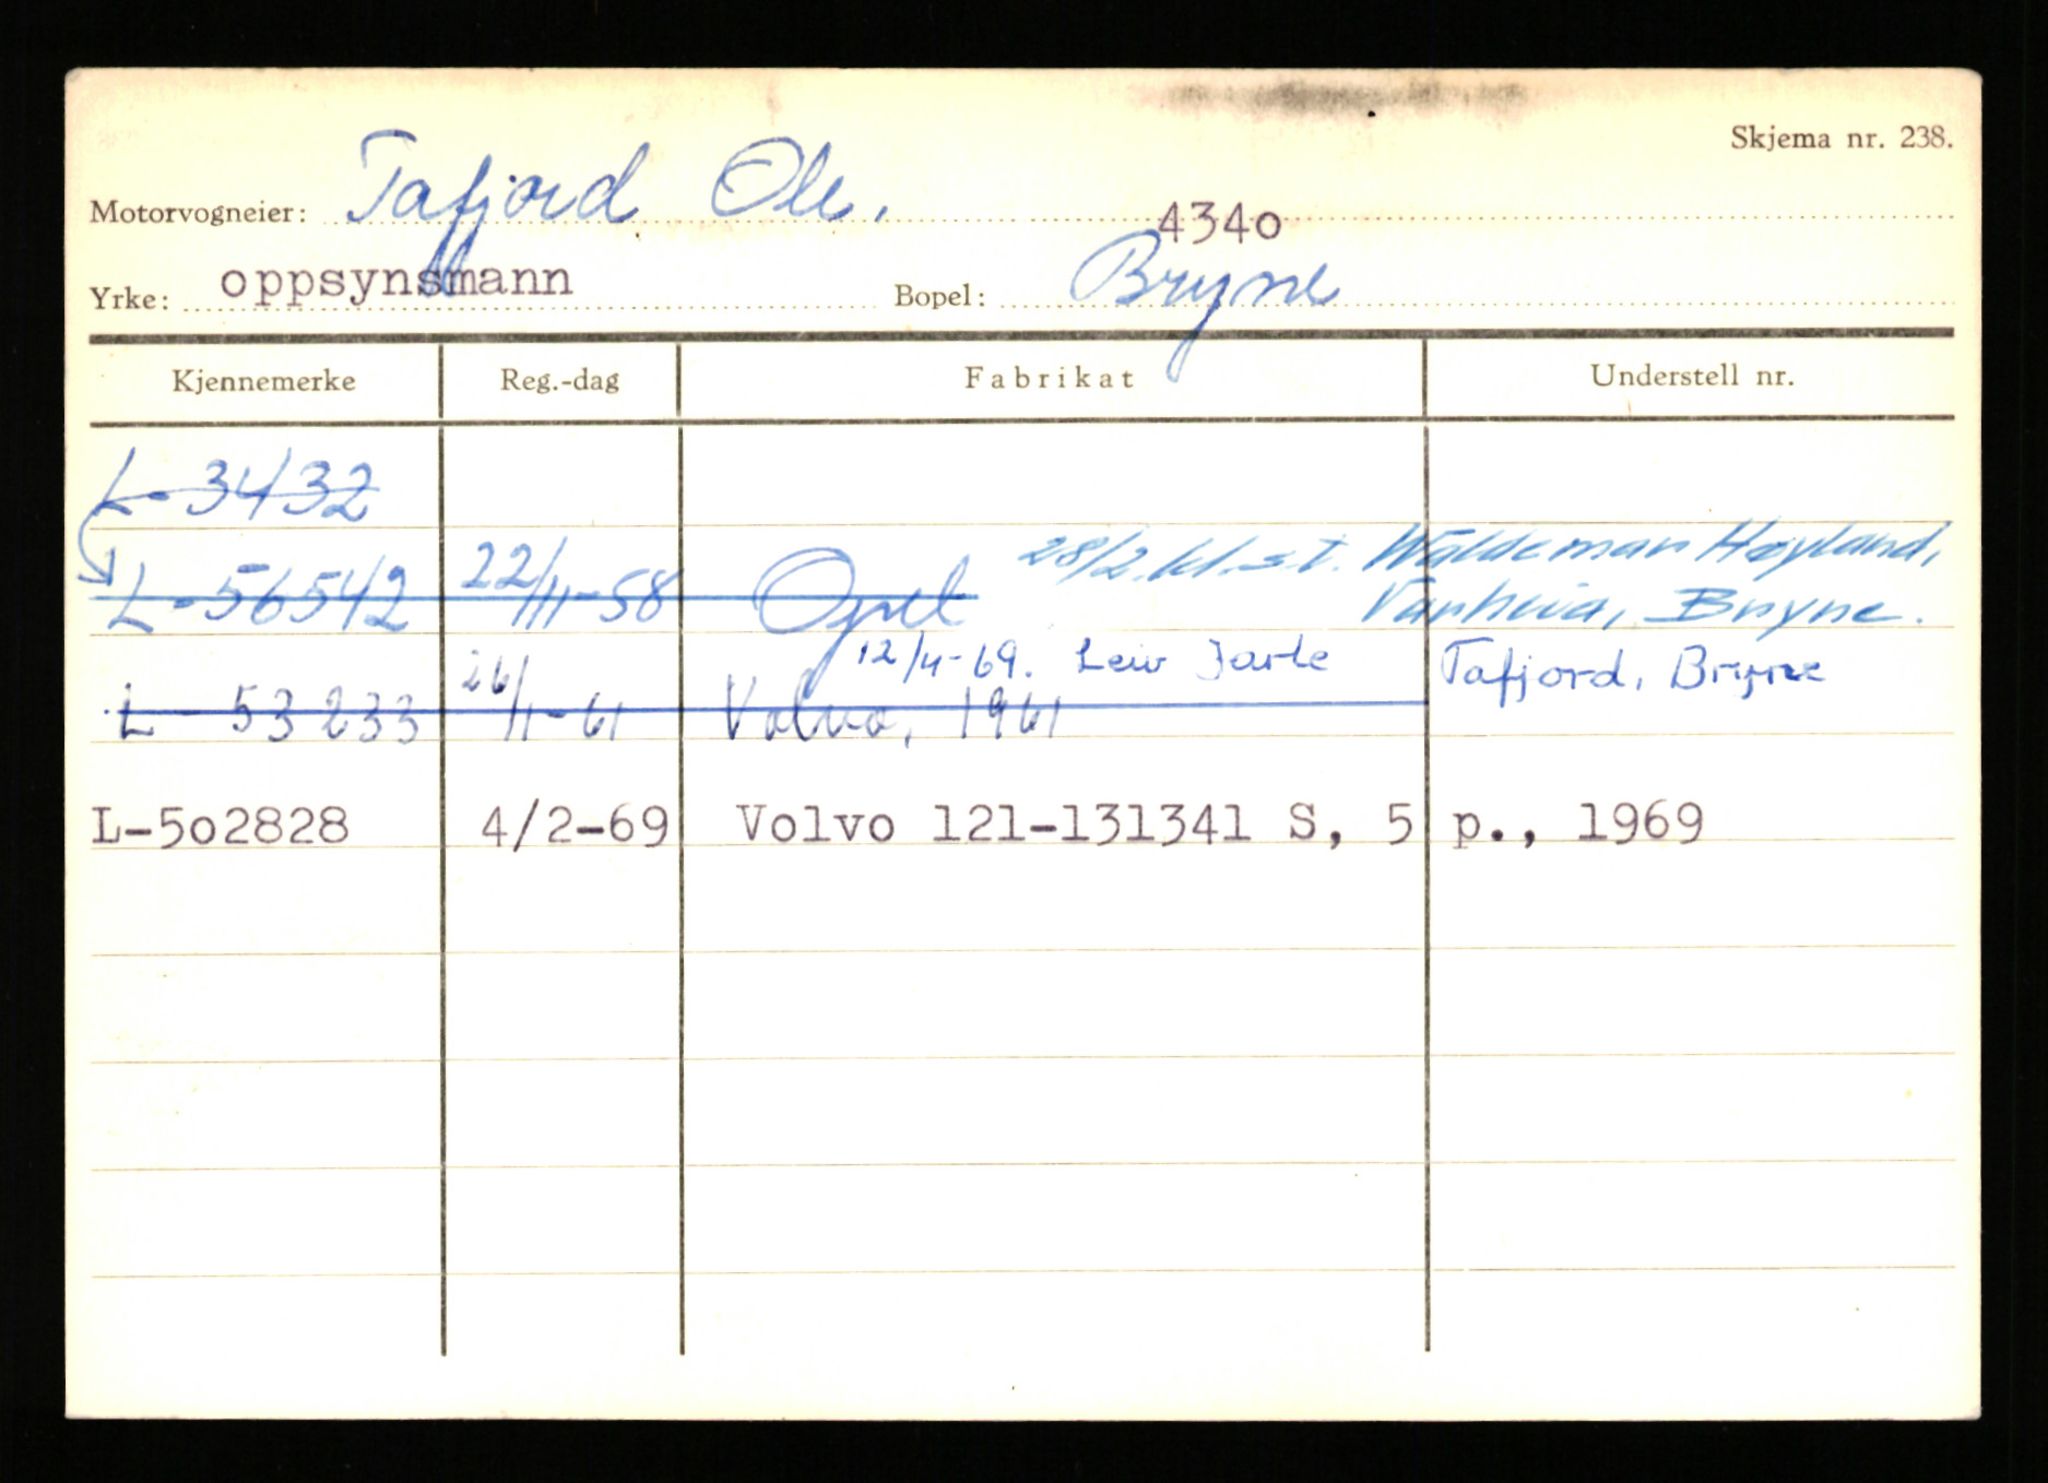 Skjema nr. 238.
Motorvogneier: Tafjord Ole.
4340
Yrke: oppsynsmann Bopel: Bryne
Kjennemerke Reg.-dag Fabrikat Understell nr.
L-3432
28/2.61. s.t. Waldemar Høyland,
L-56542 22/11-58 Opel Vanheia, Bryne.
12/4-69. Leiv Jarle Tafjord, Bryne
L-53233 26/1-61 Volvo, 1961
L-502828 4/2-69 Volvo 121-131341 S, 5 p., 1969